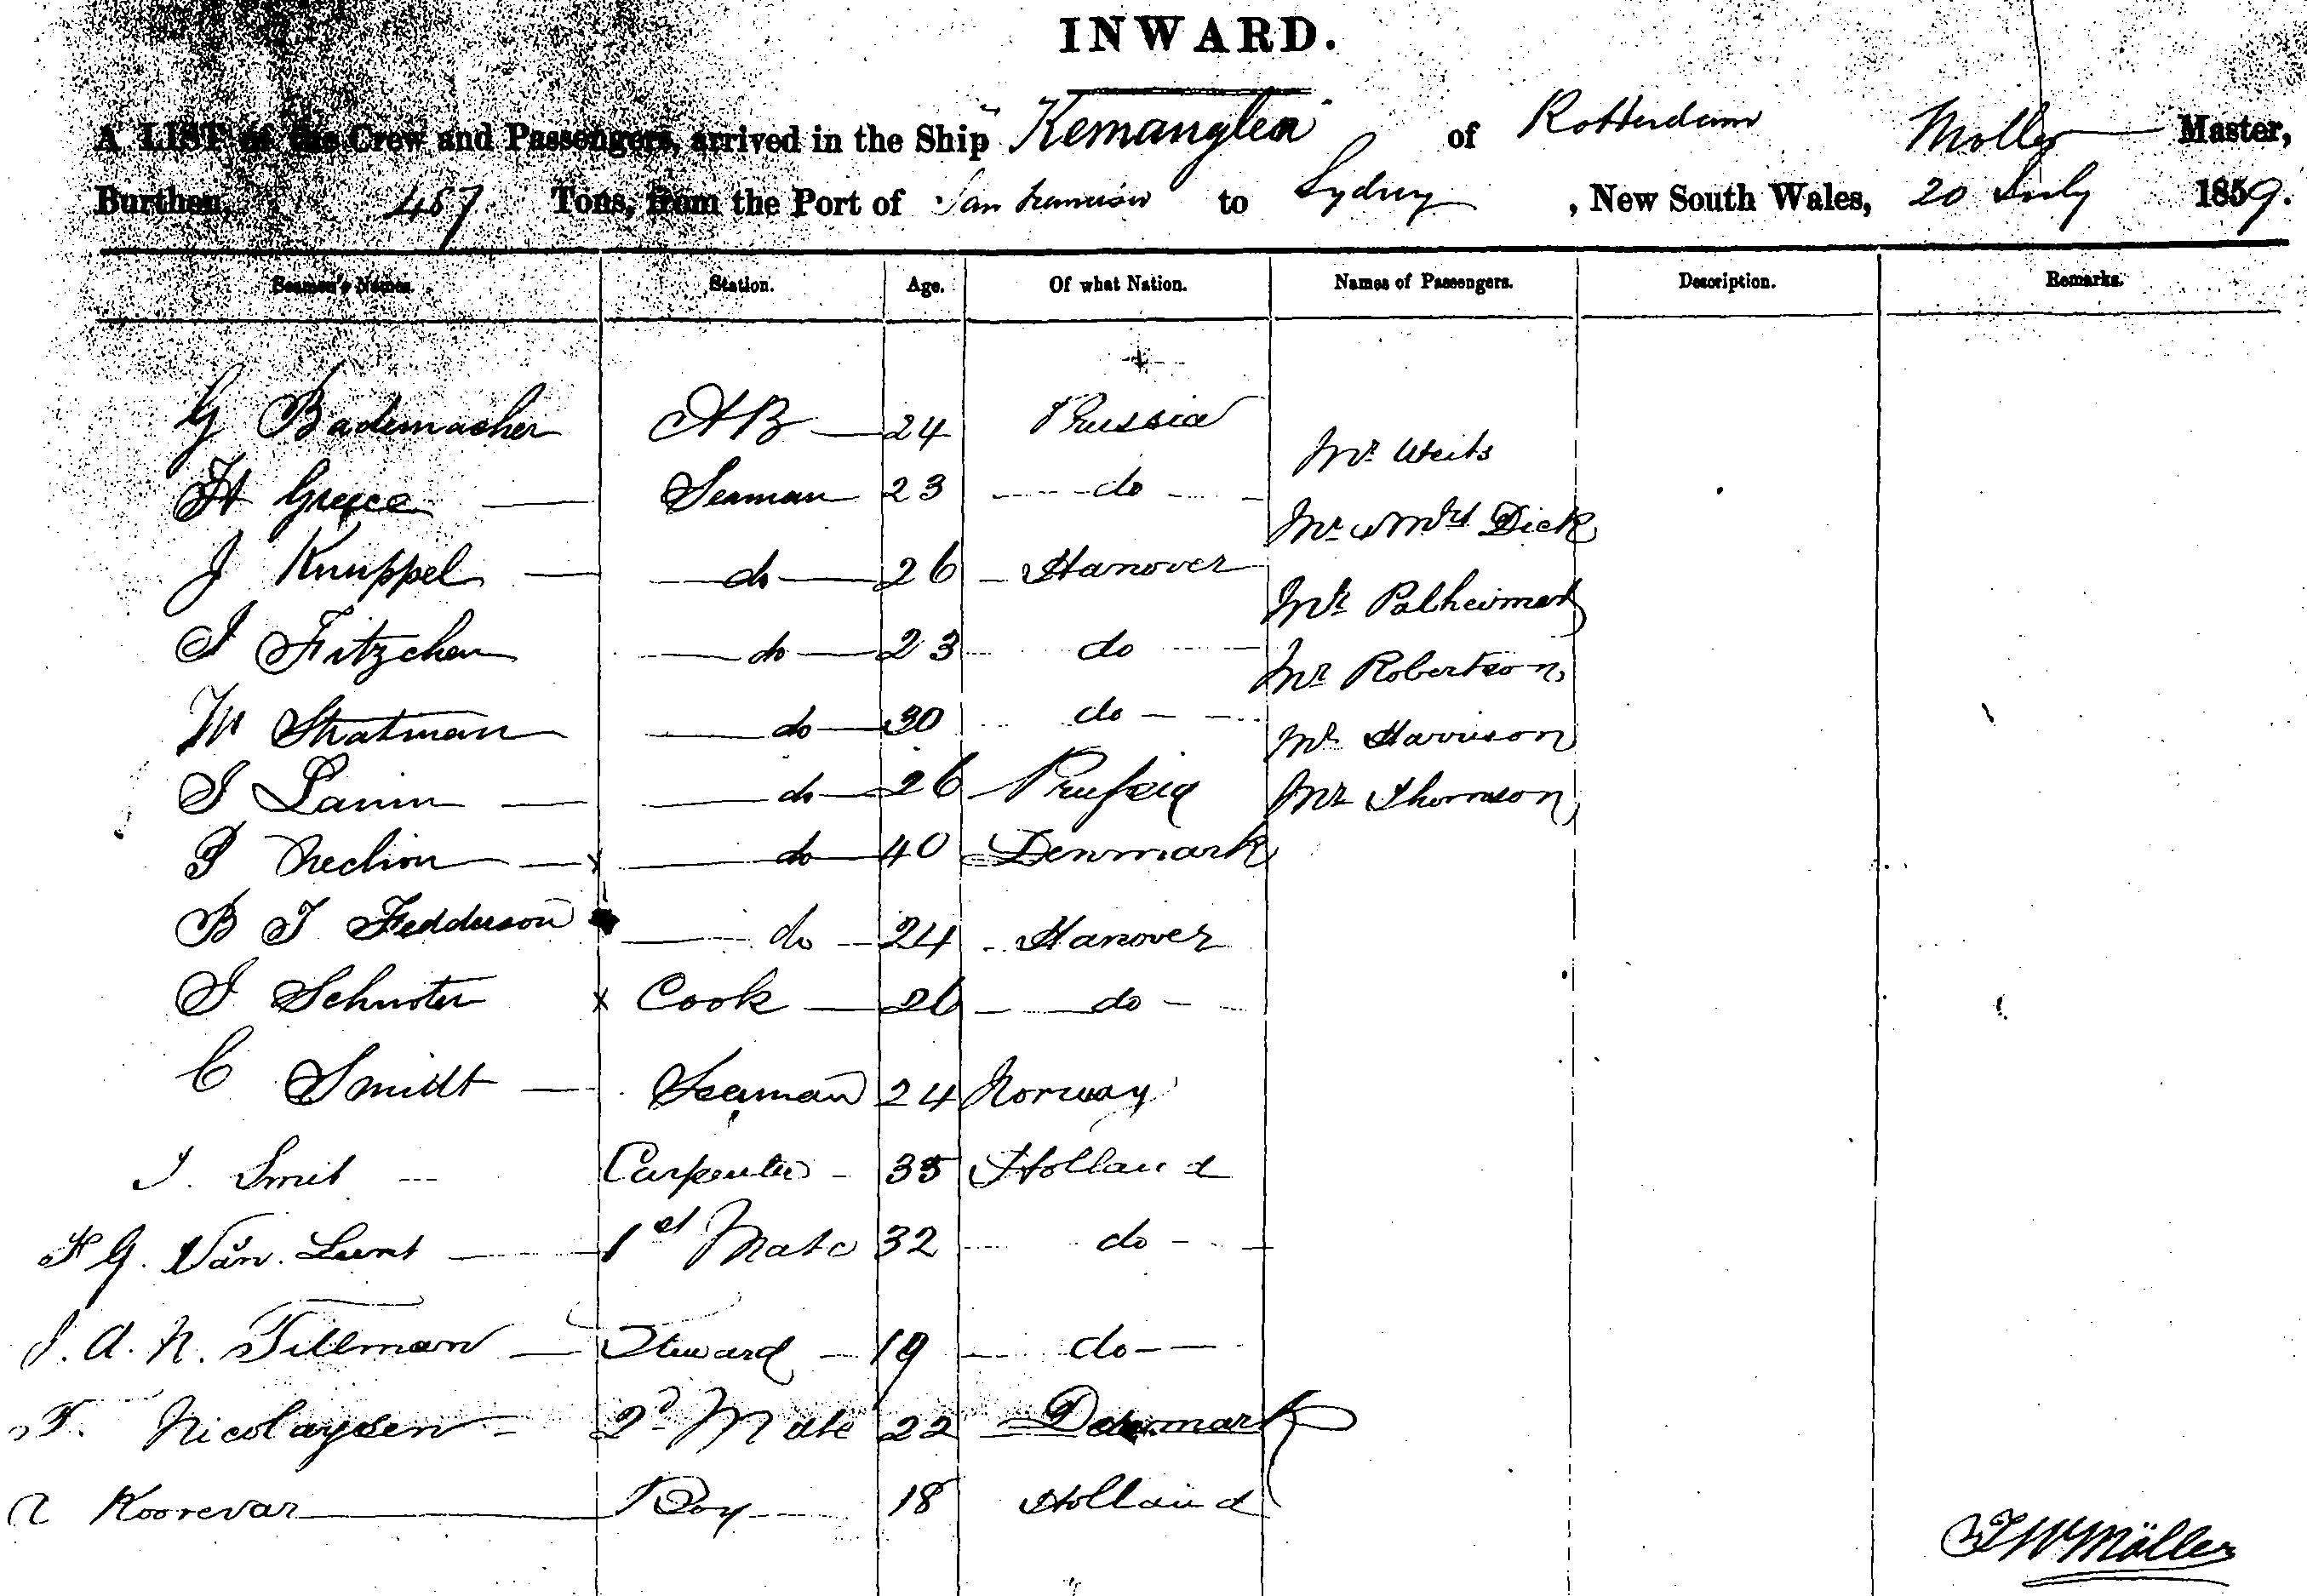 INWARD.
A LIST of the Crew and Passengers, arrived in the Ship "Kemanglen" of Rotterdam Moller Master,
Burthen, 487 Tons, from the Port of San Francisco to Sydney, New South Wales, 20 July 1859.
Seamen's Names. Station. Age. Of what Nation. Names of Passengers. Description. Remarks.
G Bademacher AB 24 Prussia
Mr Weits
H Greece Seaman 23 do
Mr & Mrs Dick
J Knuppel do 26 Hanover
Mr Palheimer
J Fitzchen do 23 do
Mr Robertson
W Stratman do 30 do
Mr Harrison
J Lamm do 26 Prussia Mr Thomson
P do 40 Denmark
B J Fedderson do 24 Hanover
J Schuster x Cook 26 do
C Smidt Seaman 24 Norway
J. Smit Carpenter 35 Holland
H G. Van. Lunt 1st Mate 32 do
J. A. N. Tillman Steward 19 do
F. Nicolaysen 2d Mate 22 Denmark
A Koorevar Boy 18 Holland
J W Möller